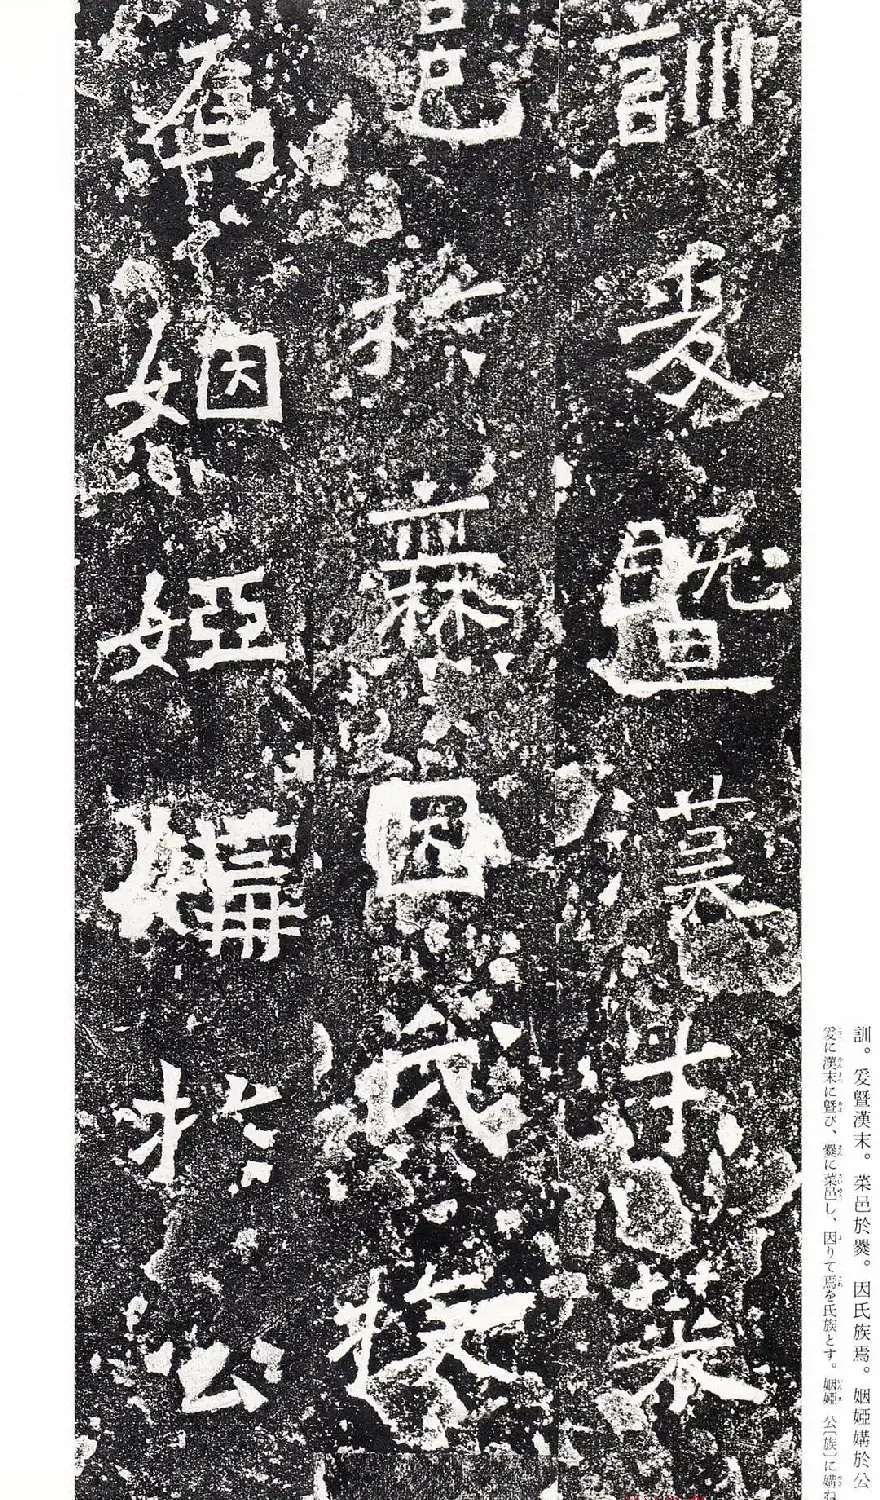 訓爰暨漢末菜
邑於爨因氏族
焉姻婭媾於公
訓。爰暨漢末。菜邑於爨。因氏族焉。姻婭媾於公
爰に漢末に暨び、爨に菜邑し、因りて焉を氏族とす。姻婭 公〔族〕に媾ね